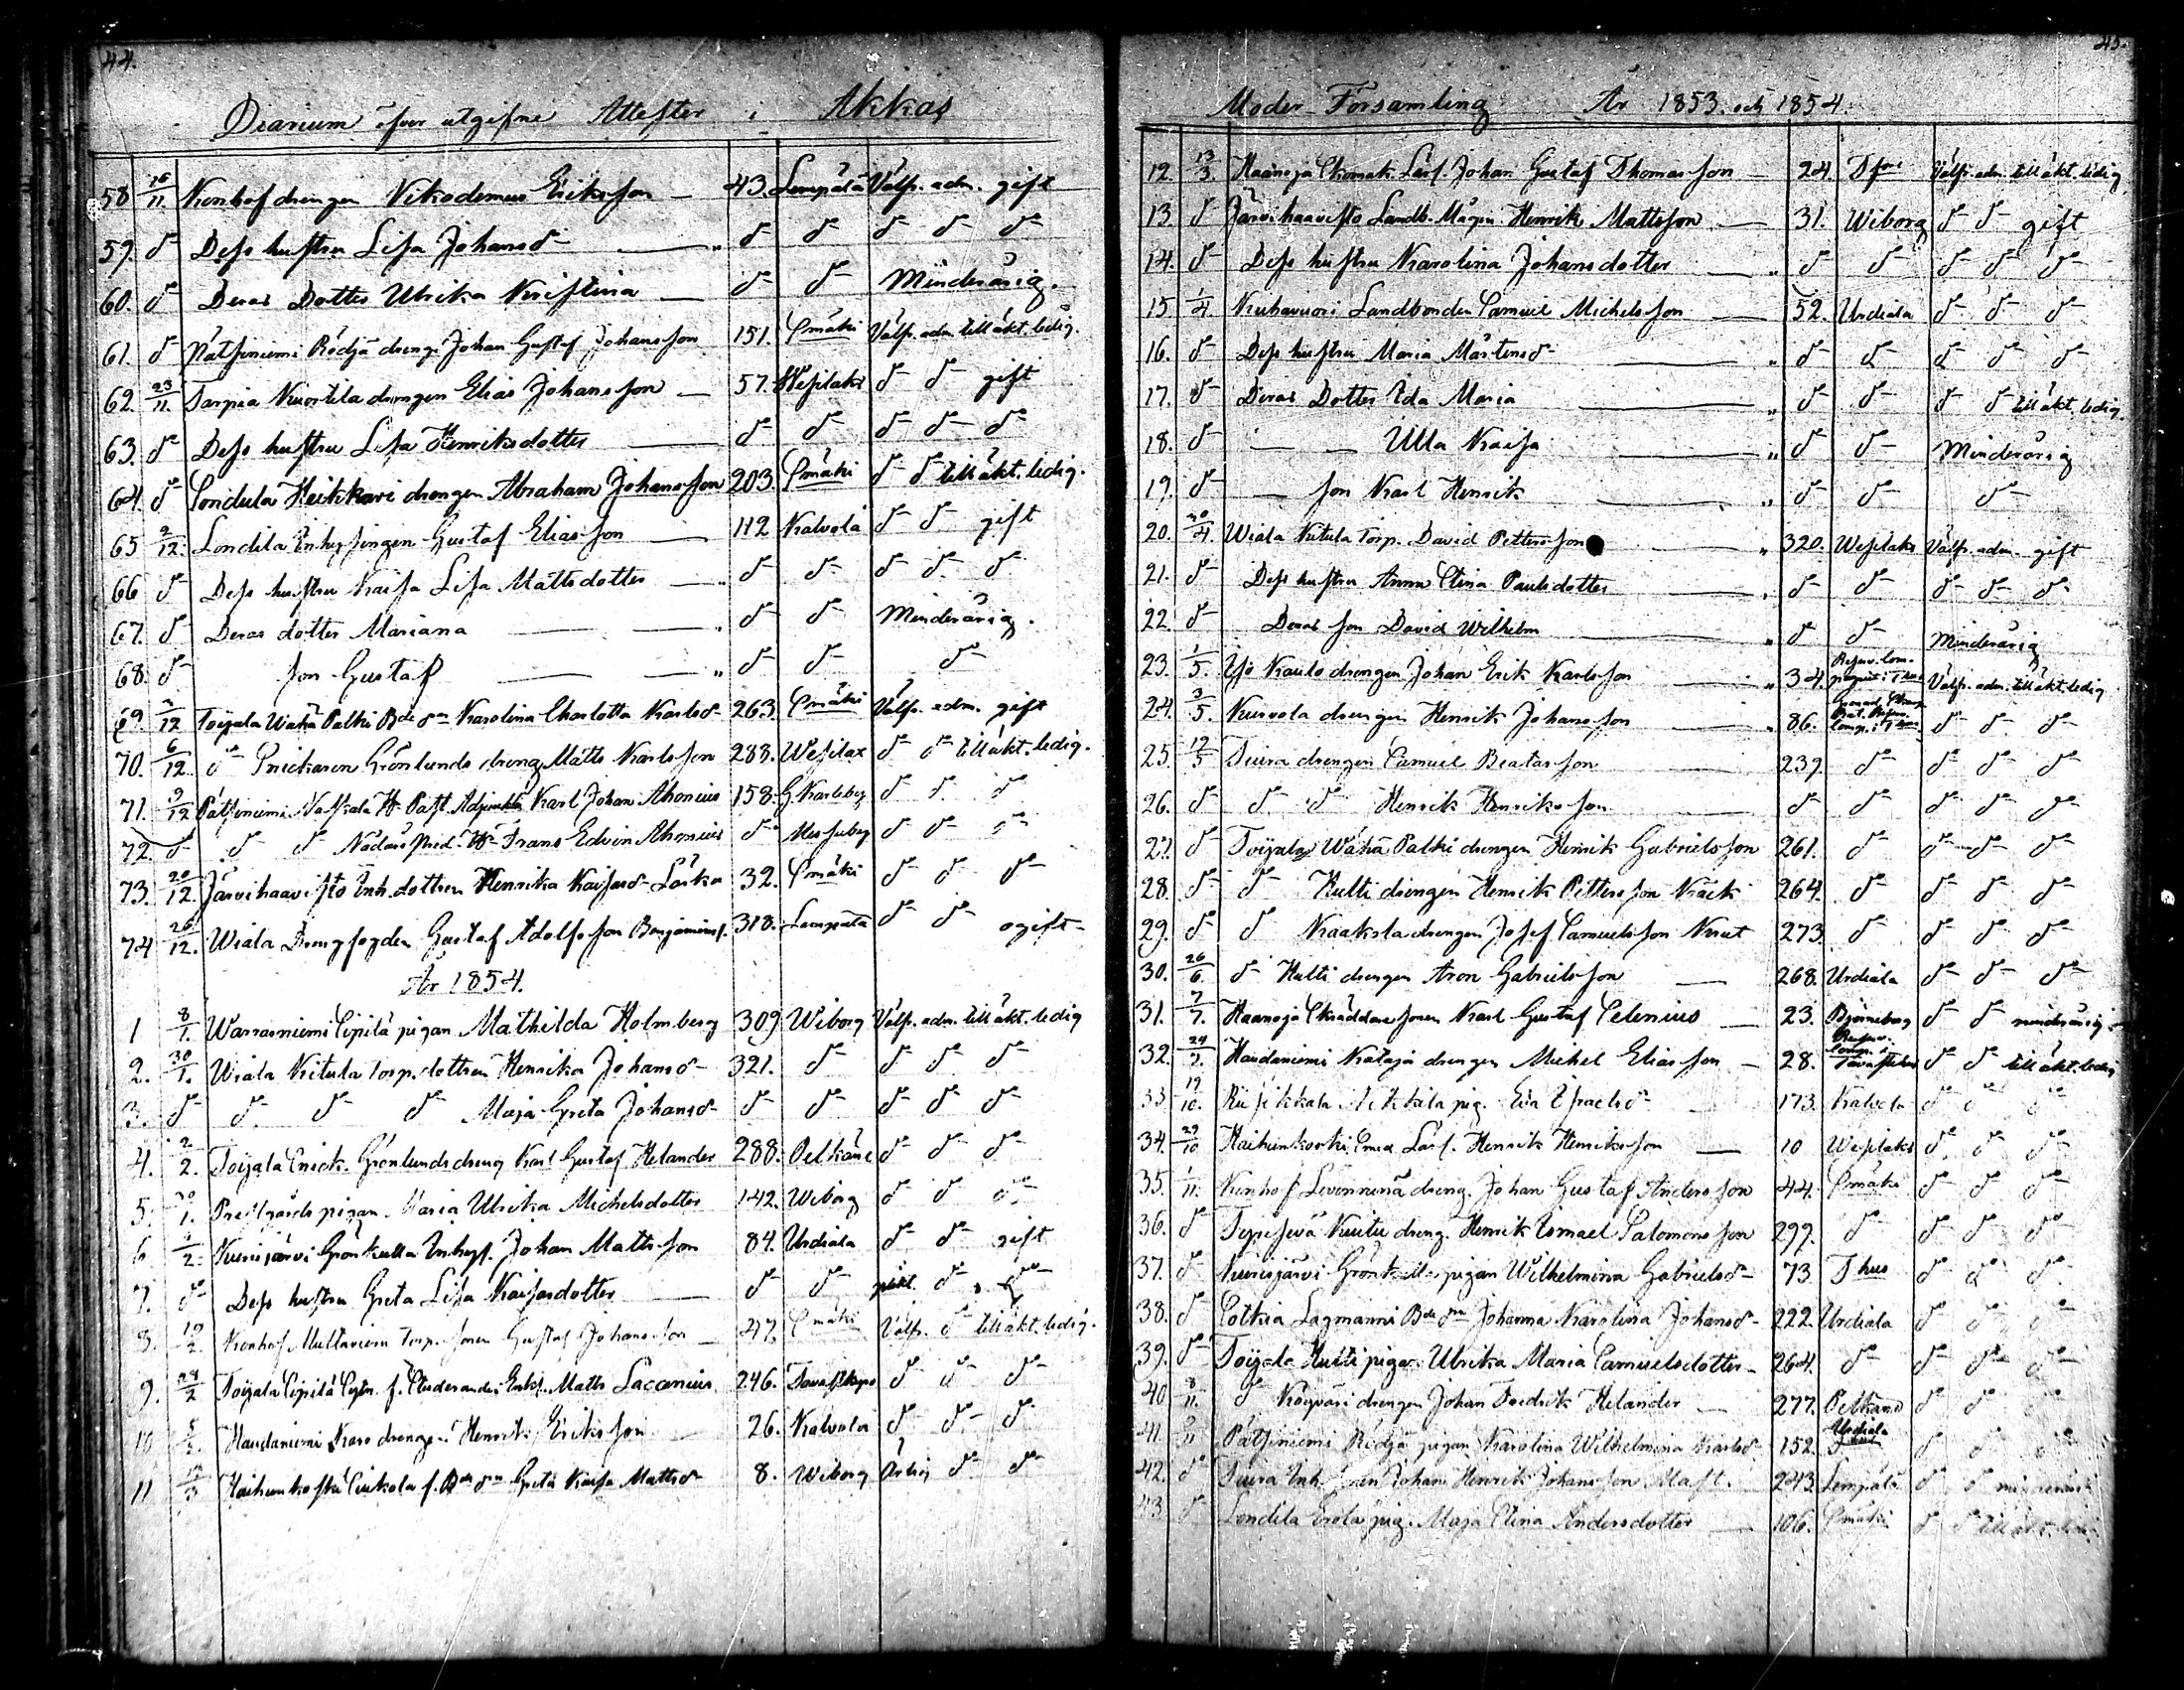 44.
Diarium öfver utgifne Attester i Akkas
58 16/11. Konhof drengen Nikodemus Eriksson — 43. Lempälä Välfr. adm. gift
59. d— Dess hustru Lisa Johansd— " d— d— d— d— d—
60. d— Deras Dotter Ulrika Kristina — d— d— Minderårig.
61. d— Pätsiniemi Rödjä drenge Johan Gustaf Johansson 151. Smäki Välfr. adm. till äkt. ledig.
62. 23/11. Tarpia Kuortila drengen Elias Johansson — 57. Wesilaks d— d— gift
63. d— Dess hustru Lisa Henriksdotter — d— d— d— d— d—
64. d— Sondula Heikkari drengen Abraham Johansson 203. Smäki d— d— till äkt. ledig.
65 2/12. Londila Inhysingen Gustaf Eliasson — 112 Kalvola d— d— gift
66 d— Dess hustru Kaisa Lisa Mattsdotter — " d— d— d— d— d—
67. d— Deras dotter Mariana — " d— d— Minderårig.
68. d— son Gustaf — " d— d— d—
69. 3/12 Toijala Wähä Palki Bde dn Karolina Charlotta Karlsd— 263. Smäki Välfr. adm. gift
70. 6/12. d— Snickaren Grönlunds dreng Matts Karlsson 283. Wesilax d— d— till äkt. ledig.
71. 9/12 Pätsiniemi Nasskala Hr Past. Adjunkt Karl Johan Ahonius 158. G. Karleby d— d— d—
72. d— d— d— Nådårs Pred. Hr Frans Edvin Ahonius d— Messuby d— d— d—
73. 20/12. Järvihaavisto Inh. dottren Henrika Kaisasd— Laika 32. Smäki d— d— d—
74 26/12. Wiala Drengfogden Gustaf Adolfsson Benjaminss. 318. Lempälä d— d— ogift—
År 1854.
1 8/1. Warrasniemi Sipilä pigan Mathilda Holmberg 309 Wiborg Välfr. adm. till äkt. ledig
2. 30/1. Wiala Kitula Torp. dottren Henrika Johansd— 321. d— d— d— d—
3. d— d— d— d— Maja Greta Johansd— d— d— d— d— d—
4. 2/2. Toijala Snick. Grönlunds dreng Karl Gustaf Helander 288. Pelkäne d— d— d—
5. 30/1. Prestgårds pigan Maria Ulrika Michelsdotter 142. Wiborg d— d— d—
6 4/2. Kurisjärvi Grönkulla Inhys. Johan Mattsson 84. Urdiala d— d— gift
7. d— Dess hustru Greta Lisa Kaisasdotter — d— d— d— d—
8. 19/2. Konhof Multaniemi Torp. sonen Gustaf Johansson — 47. Smäki Välfr. d— till äkt. ledig.
9. 24/2 Toijala Sipilä Matts Lacanius. 246. Tavastkyro d— d— d—
10 Haudaniemi drengen Henrik Eriksson — 26. Kalvola d— d— d—
11 Haihunkoski Seikola f. Bde dn Greta Kaisa Mattsd— 8. Wiborg Ärlig d— d—
45.
Moder-Församling År 1853. och 1854.
12. 13/3. Haanoja Skomak. Lärl. Johan Gustaf Thomasson 24. Välfr. adm. till äkt. ledig.
13. d— Järvihaavisto Landb. Mågen Henrik Mattsson — 31. Wiborg d— d— gift
14. d— Dess hustru Karolina Johansdotter — " d— d— d— d— d—
15 1/4 Kuhavuori Landbonden Samuel Michelsson — 52. Urdiala d— d— d—
16. d— Dess hustru Maria Mårtensd— — " d— d— d— d— d—
17. d— Deras Dotter Ida Maria — " d— d— d— d— till äkt. ledig.
18. d— — — Ulla Kaisa — " d— d— Minderårig
19. d— — son Karl Henrik — " d— d— d—
20. 20/4 Wiala Kitula Torp. David Pettersson — " 320. Wesilaks Välfr. adm. gift
21. d— Dess hustru Anna Stina Paulsdotter — " d— d— d— d— d—
22. d— Deras son David Wilhelm — " d— d— Minderårig
23. 1/5. Ojo Kaulo drengen Johan Erik Karlsson — " 34. Välfr. adm. till äkt. ledig
24. 3/5. Kurvola drengen Henrik Johansson — " 86. d— d— d—
25. 12/5 Suira drengen Samuel Beatasson — 239. d— d— d— d—
26. d— d— d— Henrik Henriksson — d— d— d— d— d—
27. d— Toijala Wähä Palki drengen Henrik Gabrielsson 261. d— d— d— d—
28. d— d— Hulti drengen Henrik Pettersson Kräck 264. d— d— d— d—
29. d— d— Kraaksla drengen Josef Samuelsson Knut 273. d— d— d— d—
30. 26/6. d— Hulti drengen Aron Gabrielsson — 268. Urdiala d— d— d—
31. 7/7. Haanoja Skräddare sonen Karl Gustaf Selenius — 23. Björneborg d— d— minderårig
32. 24/7. Haudaniemi Kataja drengen Michel Eliasson — 28. d— d— till äkt. ledig
33 19/10. Riisikkala Mikkila pig. Eva Israelsd— 173. Kalvola d— d— d—
34. 29/10 Haihunkoski Smed Lärl. Henrik Henriksson — 10 Wesilaks d— d— d—
35. 1/11. Kunhof dreng. Johan Gustaf Andersson 44. Smäki d— d— d—
36. d— Kuitu dreng. Henrik Ismael Salomonsson 299. d— d— d— d—
37. d— Kurisjärvi Grönk. pigan Wilhelmina Gabrielsd— 73 Thus d— d— d—
38. d— Sotkia Lagmanni Bde dn Johanna Karolina Johansd— 222. Urdiala d— d— d—
39. d— Toijala Hulti pigan Ulrika Maria Samuelsdotter — 264. d— d— d— d—
40 8/11. d— Köyväri drengen Johan Fredrik Helander — 277. Pelkäne d— d— d—
41. Pätsiniemi Rödjä pigan Karolina Wilhelmina Karlsd— 152. Urdiala d— d— d—
42. d— Suira Inh. son Johan Henrik Johansson Mast. 243. Lempälä d— d— minderårig
43 d— Londila Erola pig. Maja Stina Andersdotter — 106. Smäki d— d— till äkt. ledig